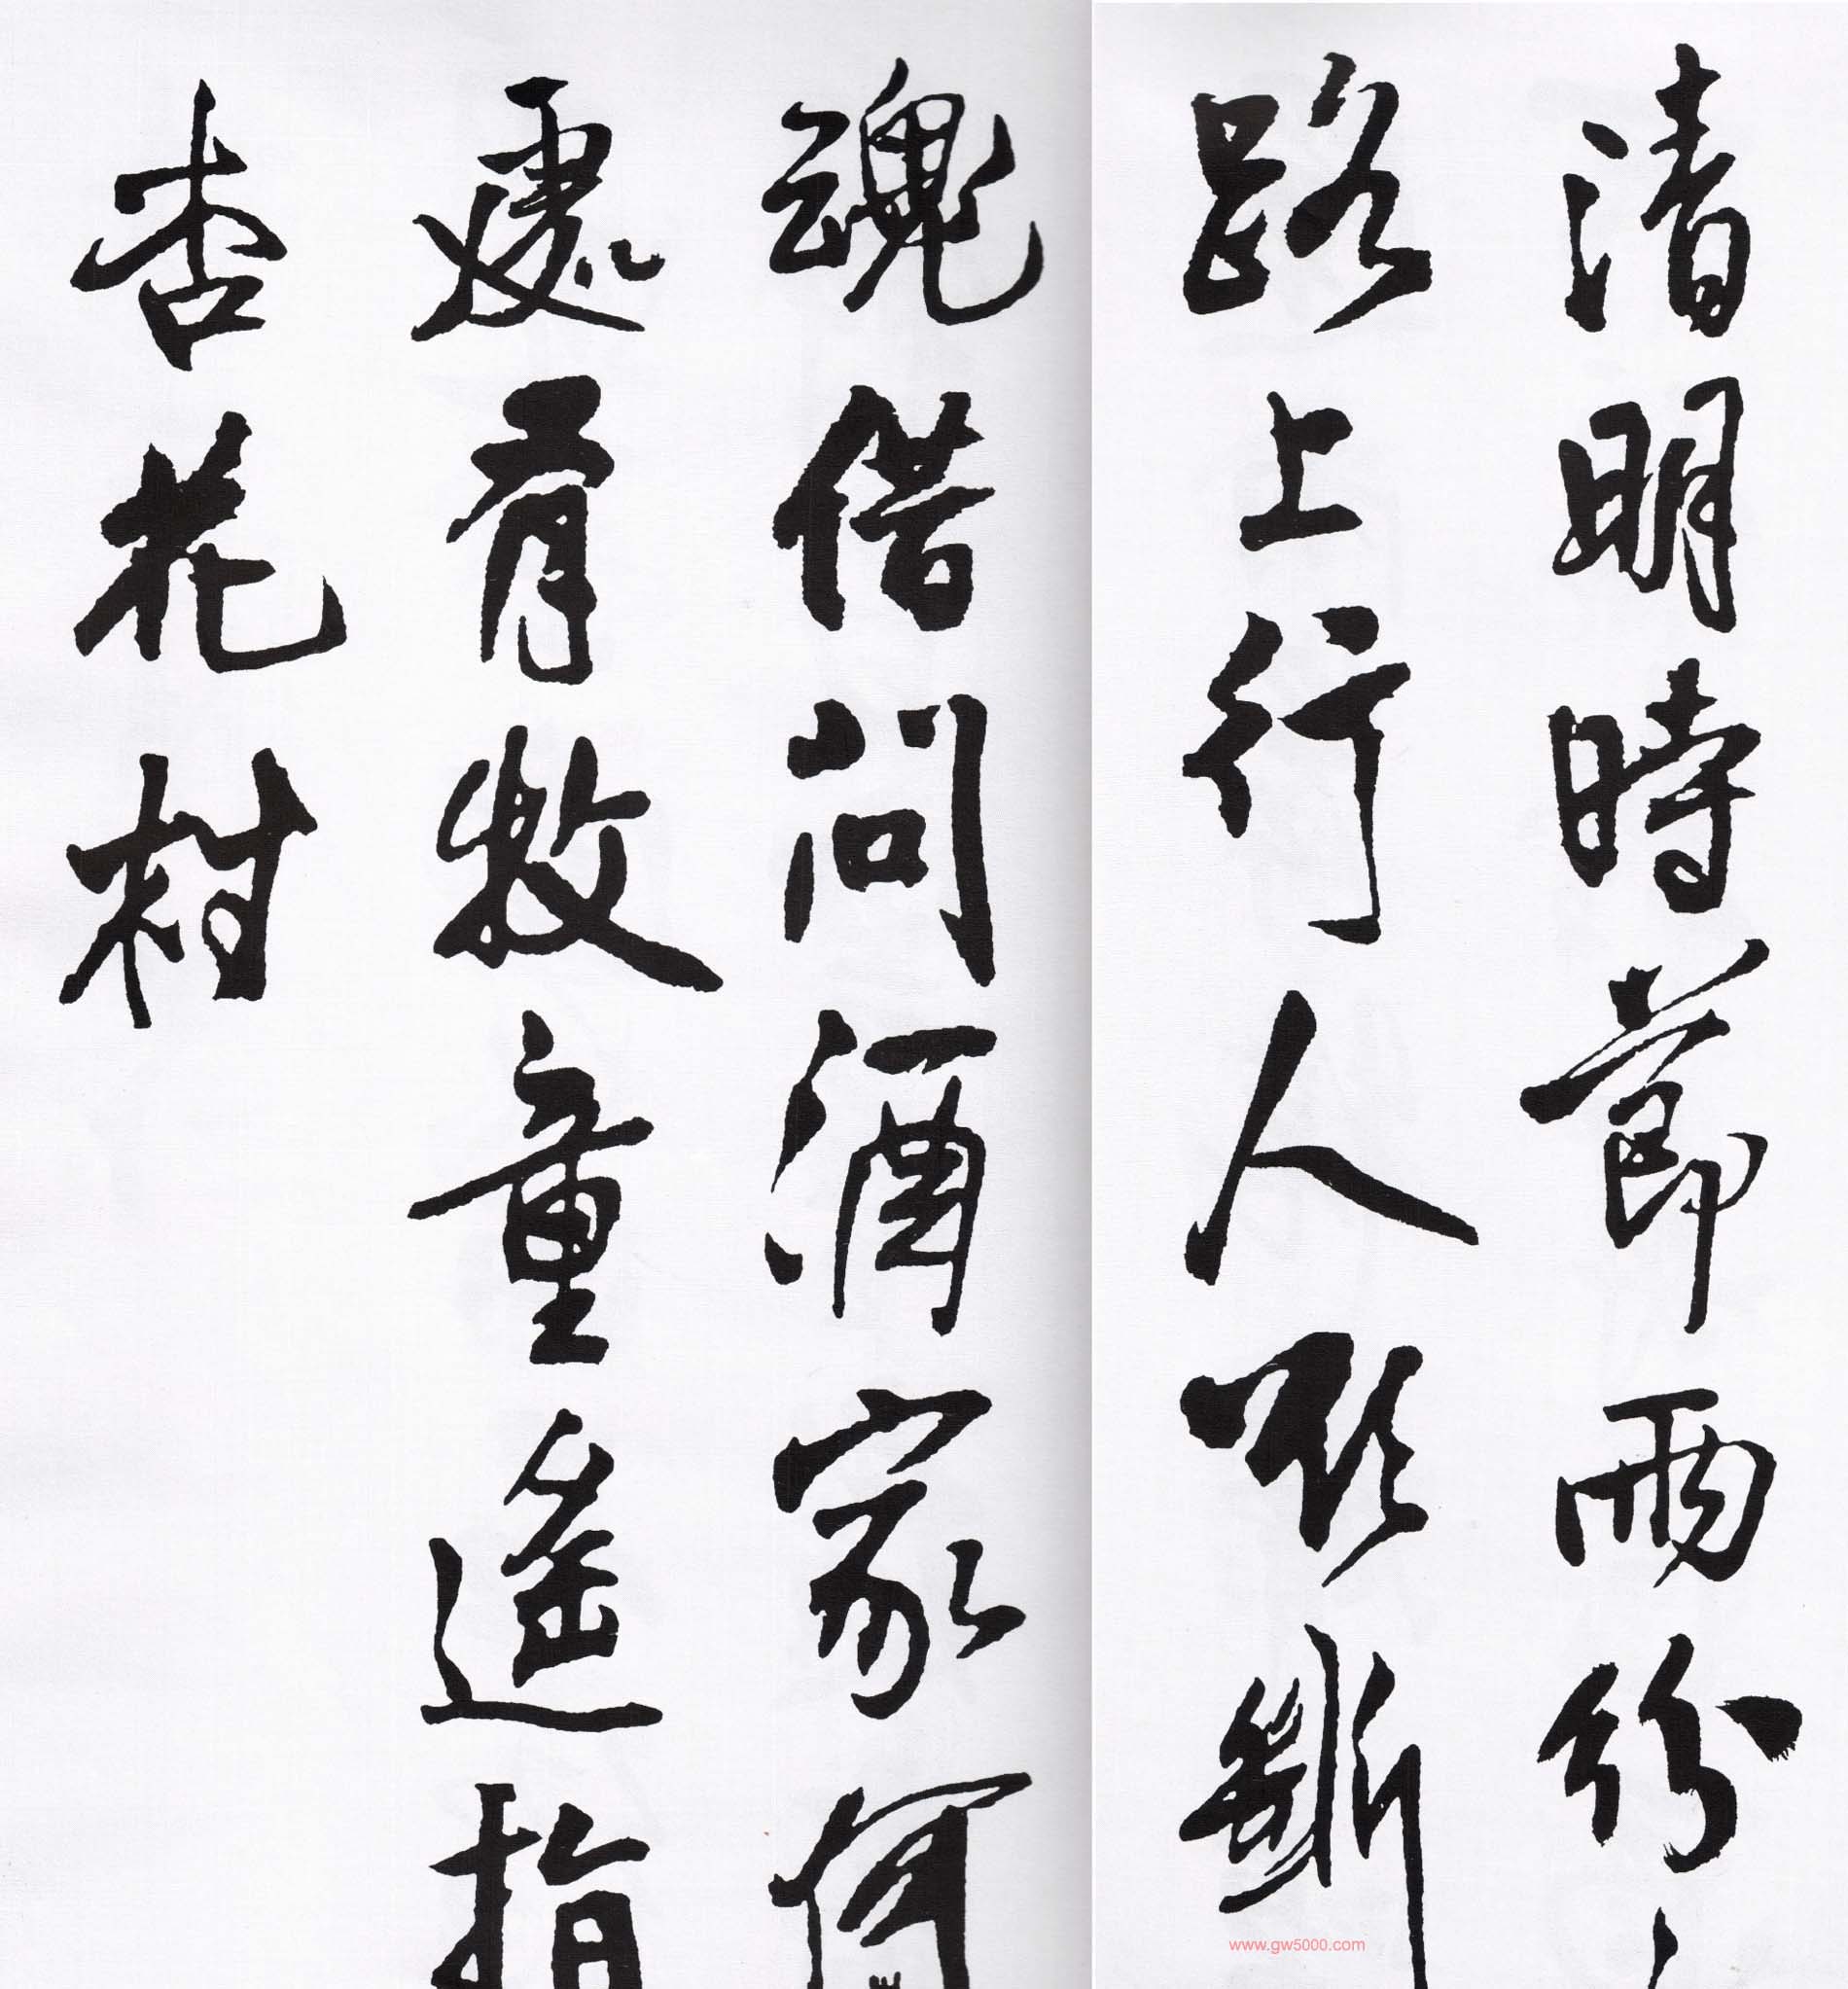 清明時節雨紛
路上行人欲斷
魂借問酒家何
處有牧童遙指
杏花村
www.gw5000.com